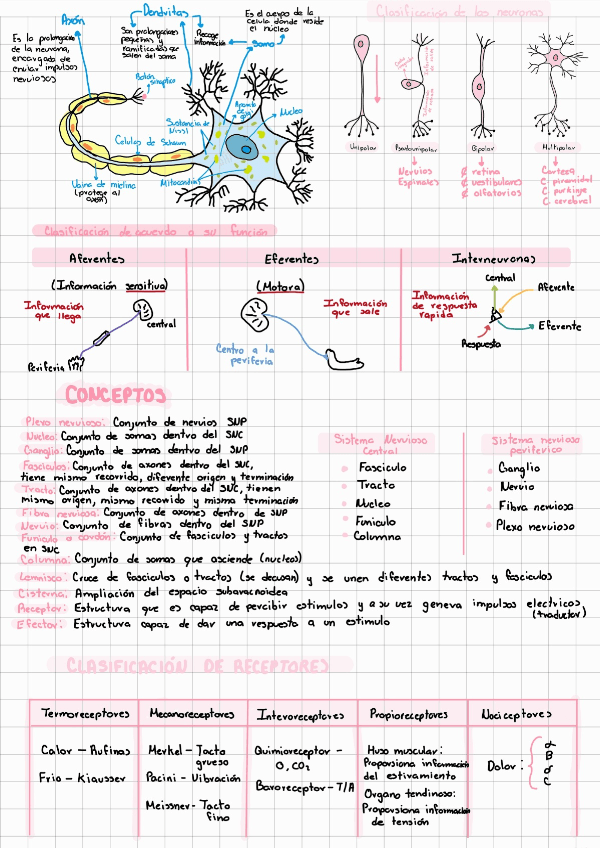 Axón
Es la prolongación
de la neurona,
encargado de
enviar impulsos
nerviosos
Dendritas
Son prolongaciones
pequeñas y
ramificadas que
salen del soma
Recoge
información
Es el cuerpo de la
celula donde reside
el nucleo
Soma
Botón
sinaptico
Sustancia de
Nissl
Aparato
de golgi
Nucleo
Celulas de Schwann
Vaina de mielina
(protege al
axón)
Mitocondrias
Clasificación de las neuronas
Unipolar
Pseudounipolar
Bipolar
Multipolar
Nervios
Espinales
₡ retina
₡ vestibulares
₡ olfatorios
Corteza
C piramidal
C purkinje
C cerebral
Clasificación de acuerdo a su función
Aferentes
Eferentes
Interneuronas
(Información sensitiva)
Información
que llega
central
Periferia
(Motora)
Información
que sale
Centro a la
periferia
Información
de respuesta
rapida
Central
Aferente
Eferente
Respuesta
CONCEPTOS
Plexo nervioso: Conjunto de nervios SNP
Nucleo: Conjunto de somas dentro del SNC
Ganglio: Conjunto de somas dentro del SNP
Fasciculos: Conjunto de axones dentro del SNC,
tiene mismo recorrido, diferente origen y terminación
Tracto: Conjunto de axones dentro del SNC, tienen
mismo origen, mismo recorrido y misma terminación
Fibra nerviosa: Conjunto de axones dentro de SNP
Nervio: Conjunto de fibras dentro del SNP
Funiculo o cordón: Conjunto de fasciculos y tractos
en SNC
Columna: Conjunto de somas que asciende (nucleos)
Lemnisco: Cruce de fasciculos o tractos (se decusan) y se unen diferentes tractos y fasciculos
Cisterna: Ampliación del espacio subaracnoidea
Receptor: Estructura que es capaz de percibir estimulos y a su vez genera impulsos electricos
(traductor)
Efector: Estructura capaz de dar una respuesta a un estimulo
Sistema Nervioso
Central
Fasciculo
Tracto
Nucleo
Funiculo
Columna
Sistema nervioso
periferico
Ganglio
Nervio
Fibra nerviosa
Plexo nervioso
CLASIFICACIÓN DE RECEPTORES
Termoreceptores
Mecanoreceptores
Interoreceptores
Propioreceptores
Nociceptores
Calor - Rufinas
Frio - Kiausser
Merkel - Tacto
grueso
Pacini - Vibración
Meissner - Tacto
fino
Quimioreceptor -
O, CO₂
Baroreceptor - T/A
Huso muscular:
Proporsiona información
del estiramiento
Organo tendinoso:
Proporsiona información
de tensión
Dolor:
α
B
σ
C